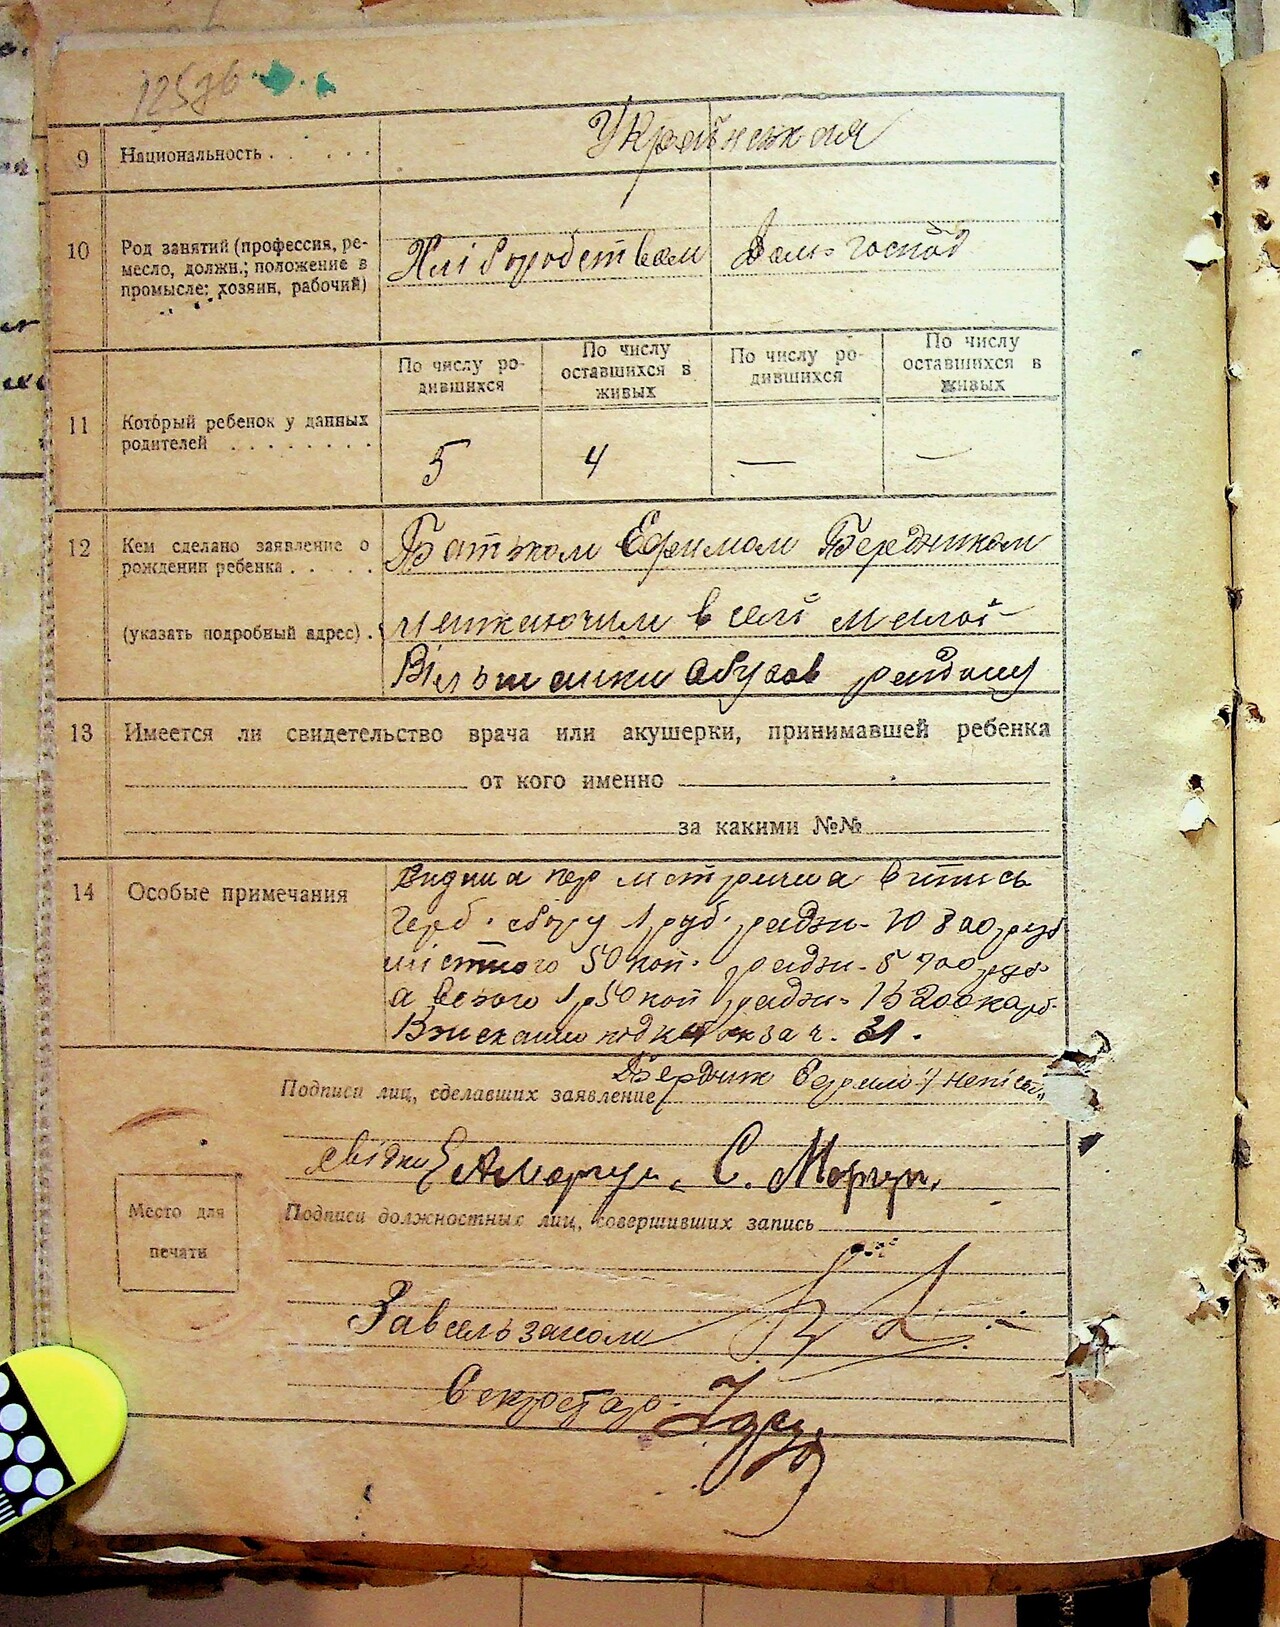 12576
9 Национальность . . . . . .
Українська
10 Род занятий (профессия, ре-
месло, должн.; положение в
промысле: хозяин, рабочий)
Хліборобством
Дом. господ
11 Который ребенок у данных
родителей . . . . . . . .
По числу ро-
дившихся
По числу
оставшихся в
живых
По числу ро-
дившихся
По числу
оставшихся в
живых
5 4 — —
12 Кем сделано заявление о
рождении ребенка . . . . .
Батьком Єфимом Бердником
(указать подробный адрес) .
мешкаючим в селі Малой
Вільшанки Обухов району
13 Имеется ли свидетельство врача или акушерки, принимавшей ребенка
от кого именно
за какими №№
14 Особые примечания
Видана метрична випись
герб. сбору 1 руб. радзн. 10 800 руб
містного 50 коп. радзн. 5 400 руб
а всього 1 р 50 коп радзн. 16 200 карб.
за ч. 31.
Подписи лиц, сделавших заявление
Бердник Єфим
свідки С. Моргун.
Подписи должностных лиц, совершивших запись
Место для
печати
Завсельзагсом
Секретарь